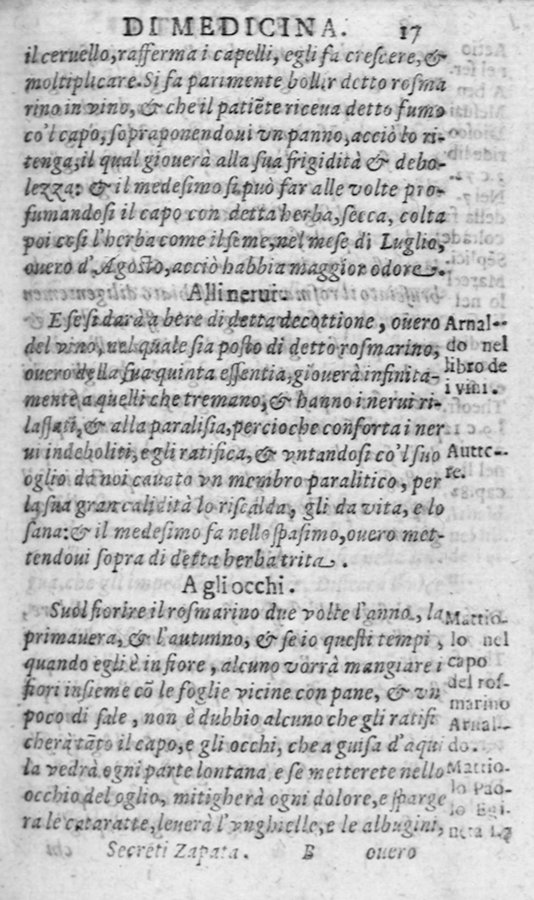 DI MEDICINA. 17
il ceruello, rafferma i capelli, egli fa crescere, &
moltiplicare. Si fa parimente bollir detto rosma
rino in vino, & che il patiẽte riceua detto fumo
co'l capo, sopraponendoui vn panno, acciò lo ri-
tenga, il qual giouerà alla sua frigidità & debo-
lezza: & il medesimo si può far alle volte pro-
fumandosi il capo con detta herba, secca, colta
poi cosi l'herba come il seme, nel mese di Luglio,
ouero d'Agosto, acciò habbia maggior odore.
Alli nerui.
E se si darà à bere di detta decottione, ouero
del vino, nel quale sia posto di detto rosmarino,
ouero della sua quinta essentia, giouerà infinita-
mente a quelli che tremano, & hanno i nerui ri-
lassati, & alla paralisia, percioche conforta i ner
ui indeboliti, e gli ratifica, & vntandosi co'l suo
oglio da noi cauato vn membro paralitico, per
la sua gran calidità lo riscalda, gli da vita, e lo
sana: & il medesimo fa nello spasimo, ouero met-
tendoui sopra di detta herba trita.
Arnal-
do nel
libro de
i vini.
Autto-
re.
A gli occhi.
Suol fiorire il rosmarino due volte l'anno, la
primauera, & l'autunno, & se io questi tempi,
quando egli è in fiore, alcuno vorrà mangiare i
fiori insieme cõ le foglie vicine con pane, & vn
poco di sale, non è dubbio alcuno che gli ratifi
cherà tãto il capo, e gli occhi, che a guisa d'aqui
la vedrà ogni parte lontana e se metterete nello
occhio del oglio, mitigherà ogni dolore, e sparge
ra le cataratte, leuerà l'vnghielle, e le albugini,
Mattio-
lo nel
capo
del ros-
marino
Arnal-
do.
Mattio-
lo Pao-
lo Egi-
neta
Secreti Zapata. B ouero